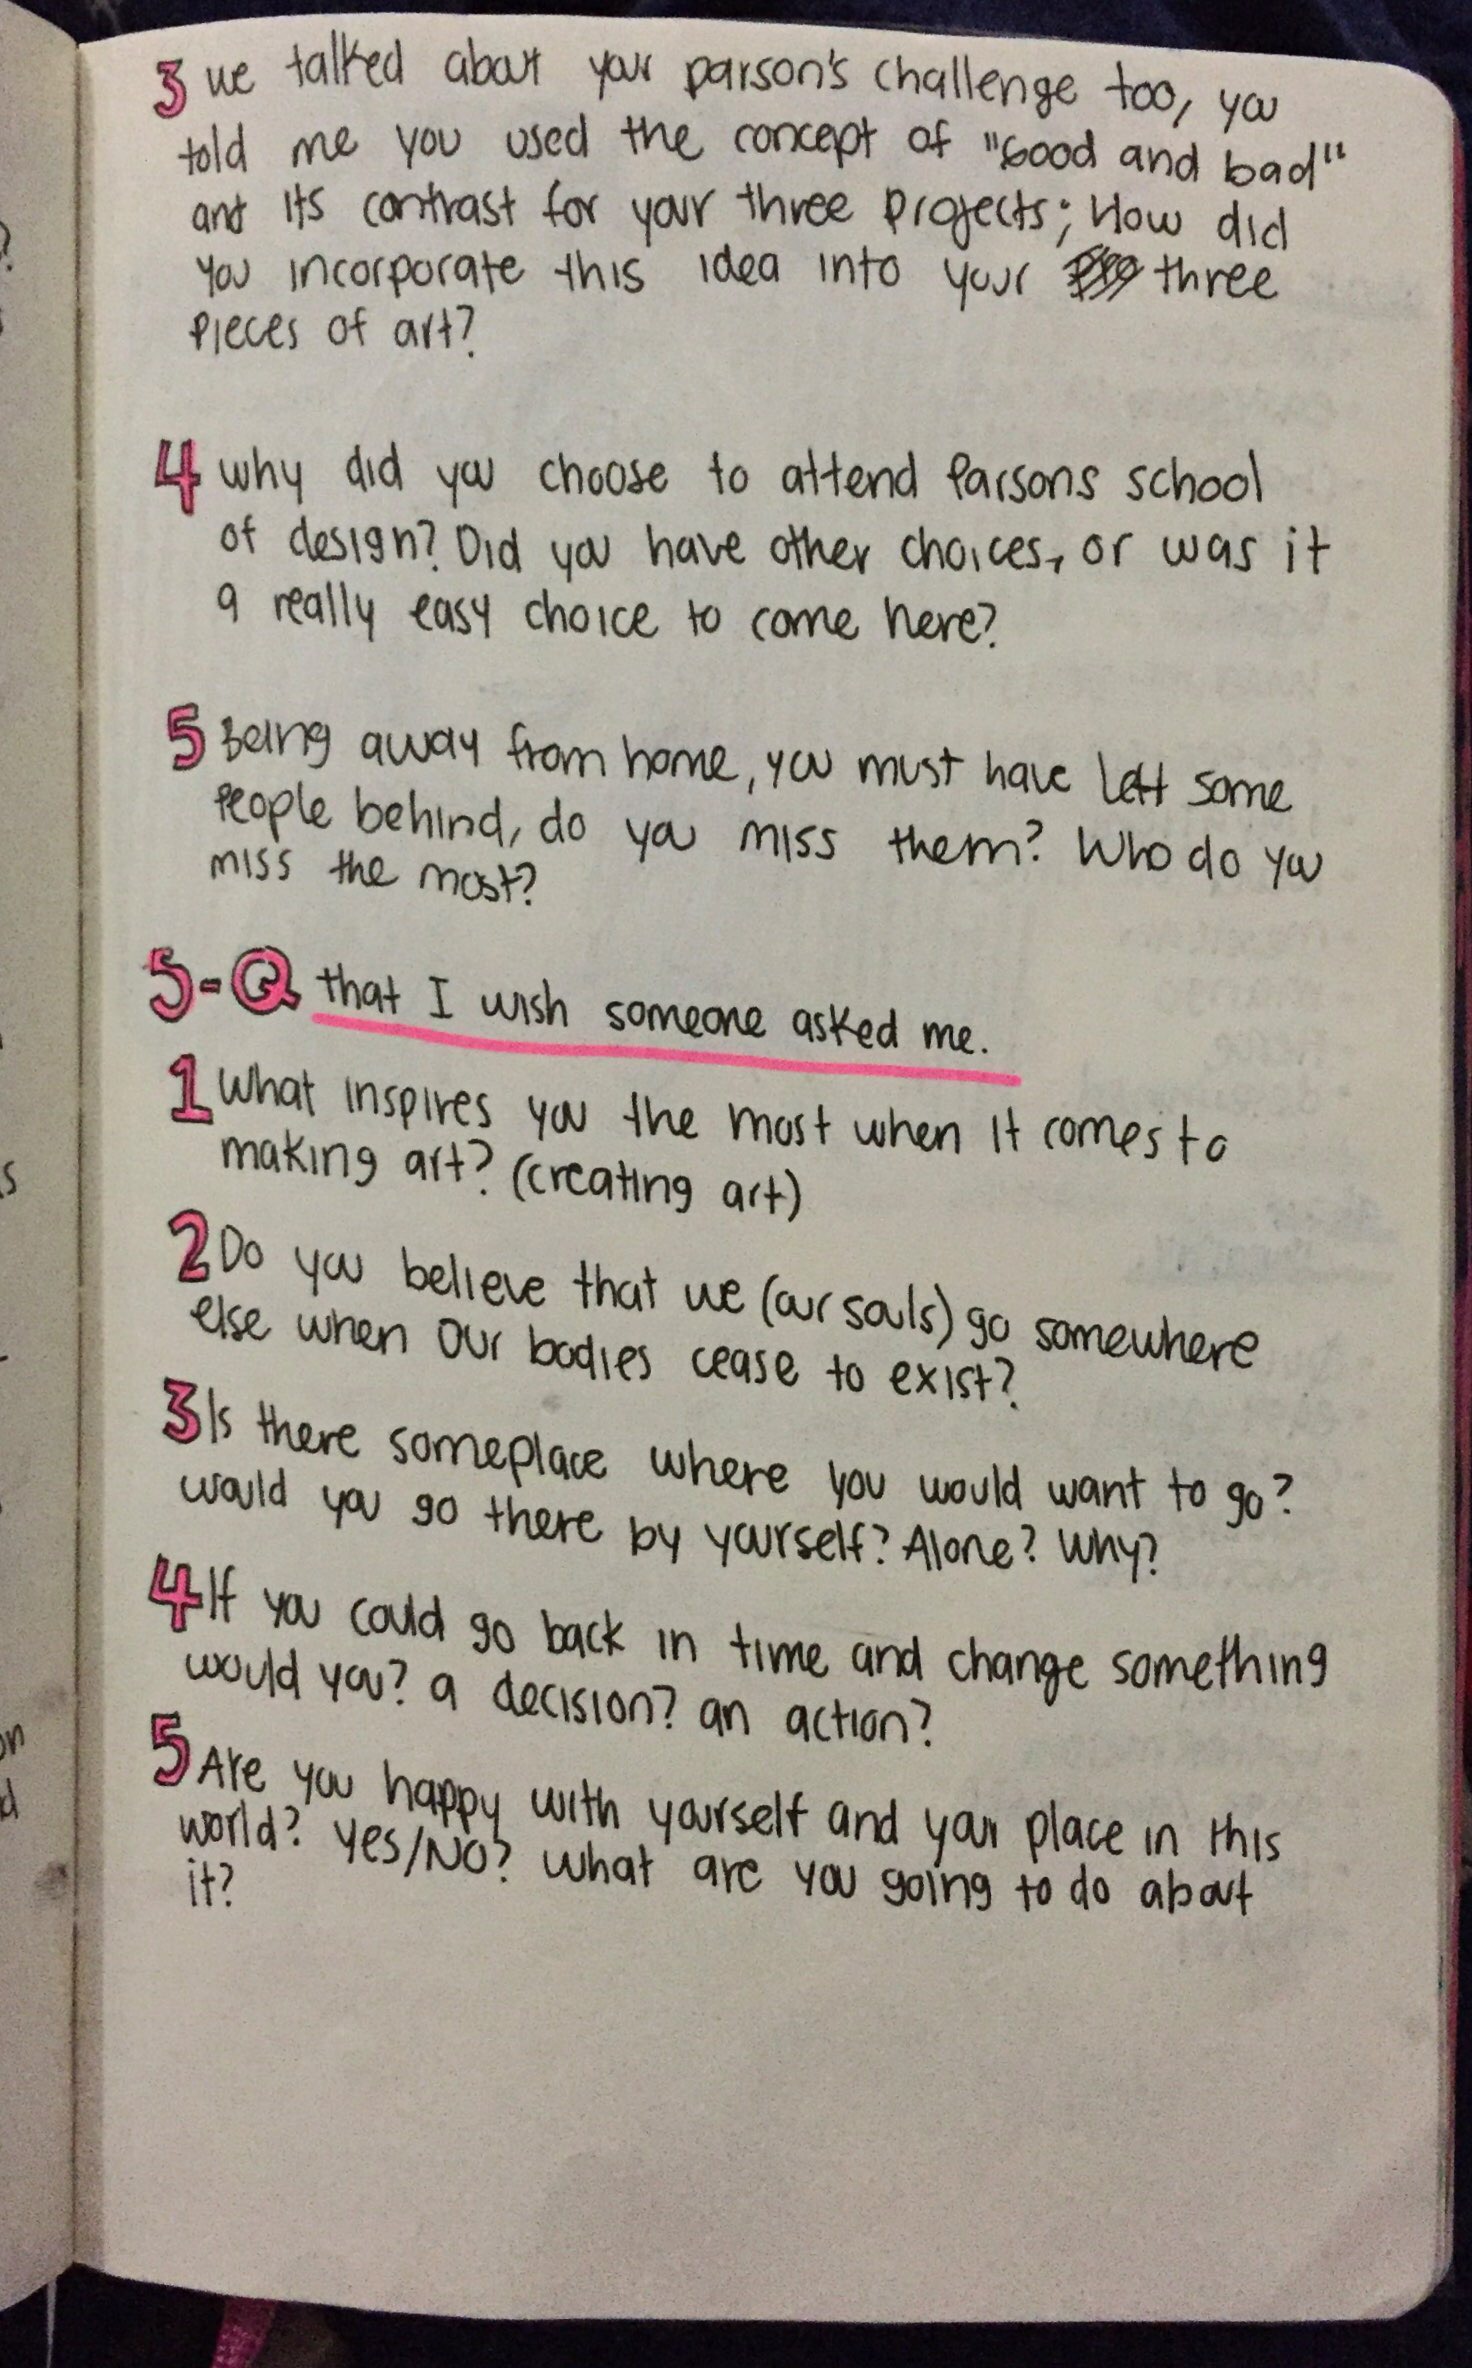 3 we talked about your parson's challenge too, you
told me you used the concept of "Good and bad"
and its contrast for your three projects; How did
you incorporate this idea into your three
pieces of art?
4 why did you choose to attend Parsons school
of design? Did you have other choices, or was it
a really easy choice to come here?
5 Being away from home, you must have left some
people behind, do you miss them? Who do you
miss the most?
5-Q that I wish someone asked me.
1 What inspires you the most when it comes to
making art? (creating art)
2 Do you believe that we (our souls) go somewhere
else when our bodies cease to exist?
3 Is there someplace where you would want to go?
would you go there by yourself? Alone? Why?
4 If you could go back in time and change something
would you? a decision? an action?
5 Are you happy with yourself and your place in this
world? Yes/No? What are you going to do about
it?